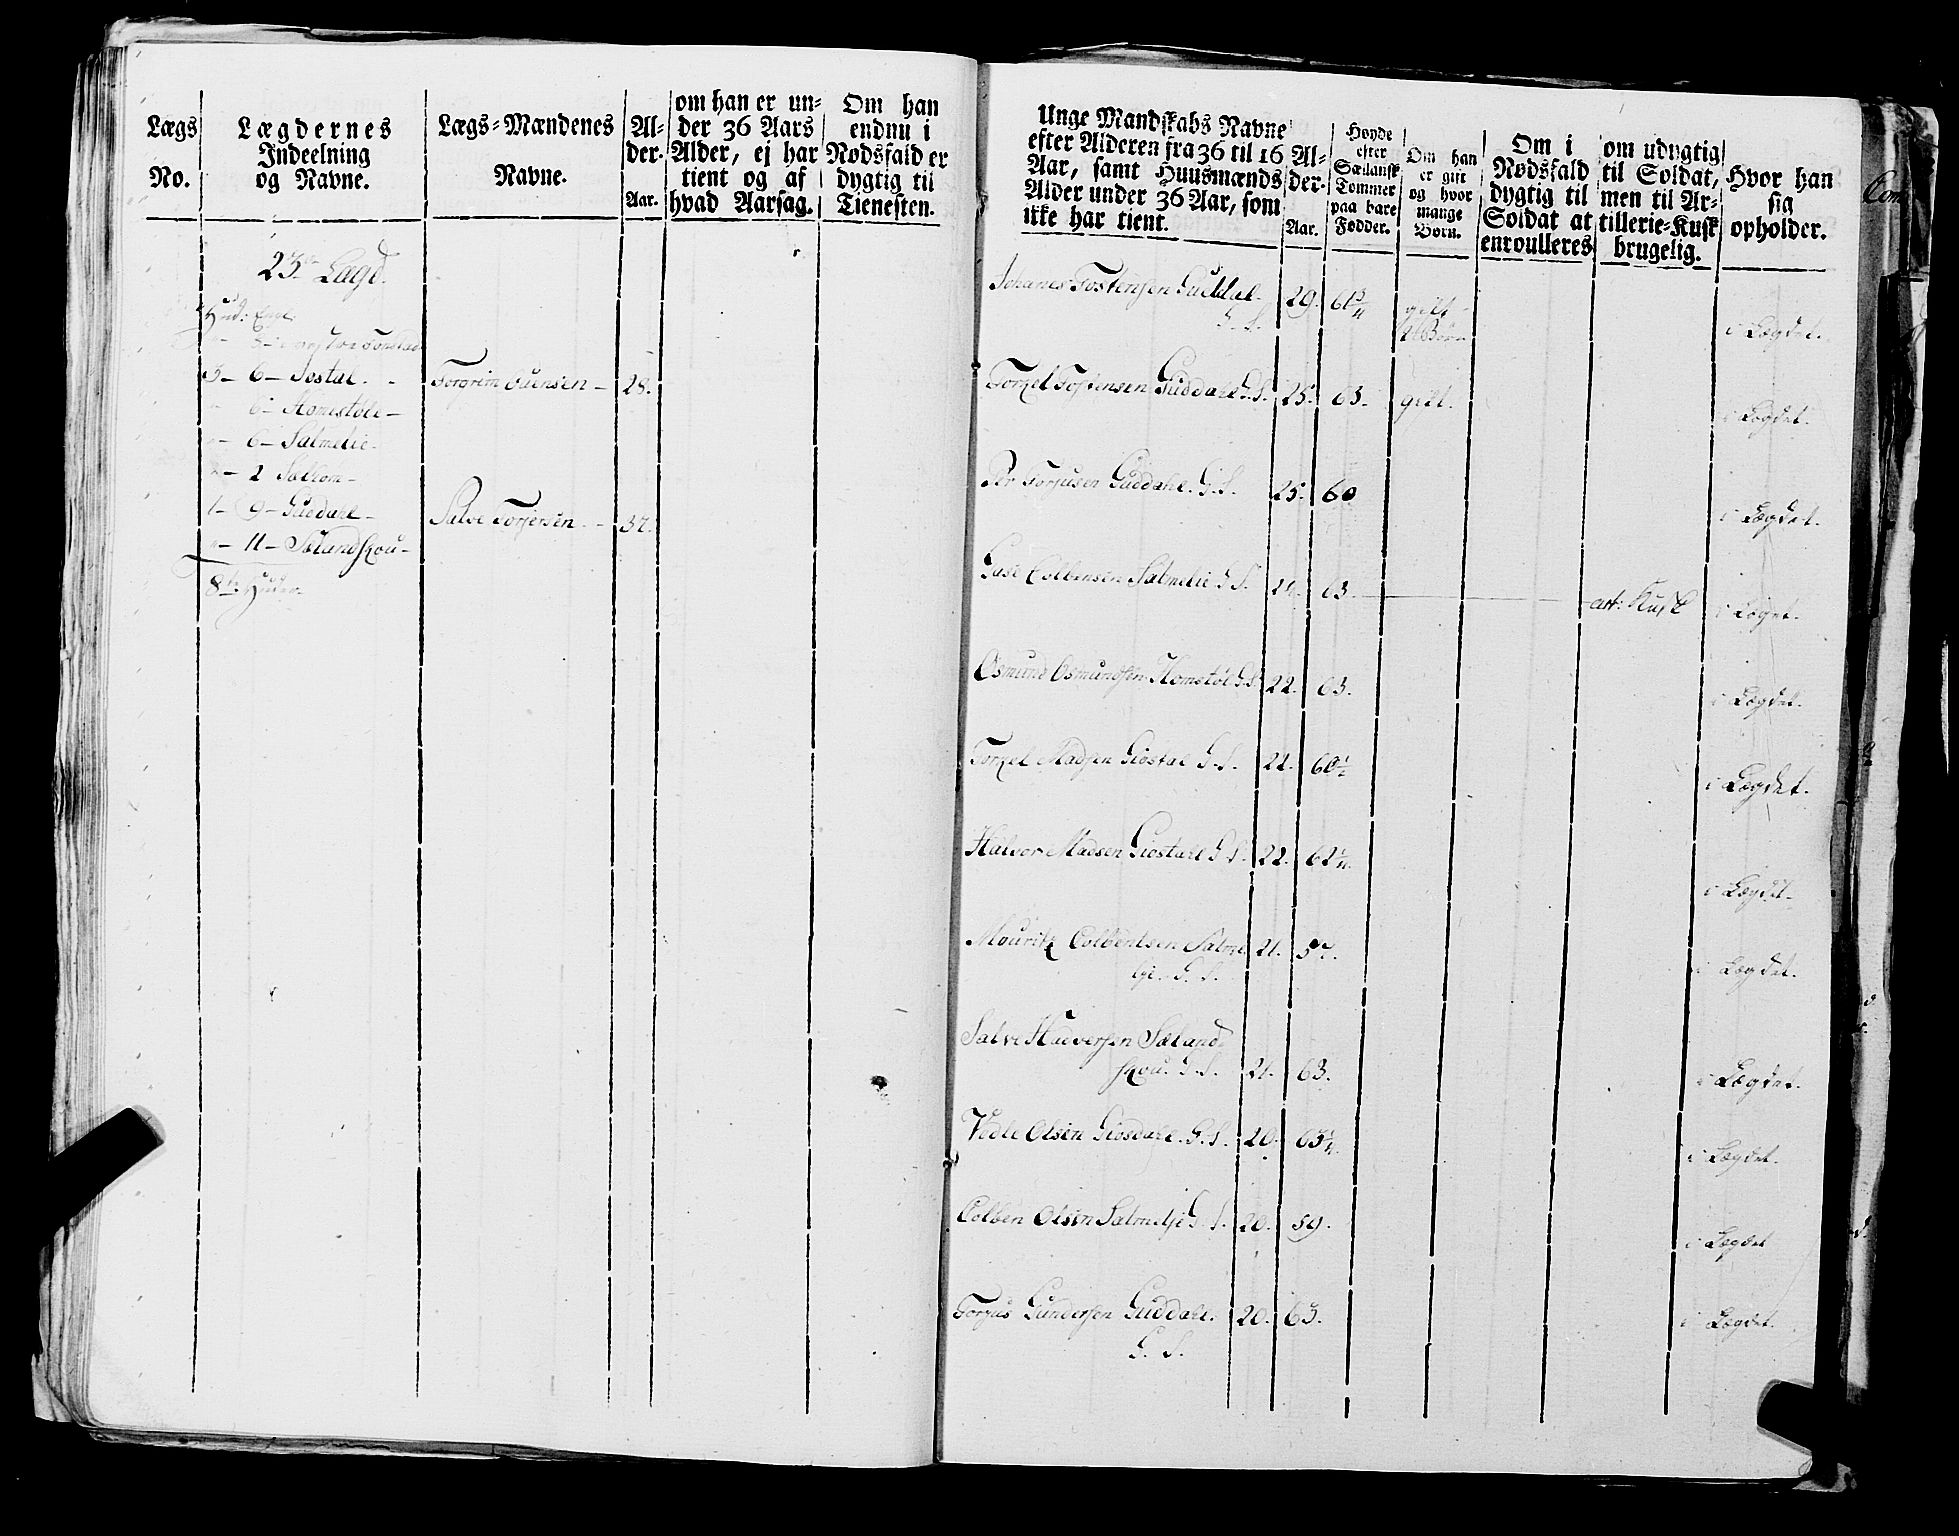 Lægs
No.
Lægdernes
Indeelning
og Navne.
Lægs-Mændenes
Navne.
Al-
der.
Aar.
om han er un-
der 36 Aars
Alder, ej har
tient og af
hvad Aarsag.
Om han
endnu i
Nødsfald er
dygtig til
Tienesten.
23de Lægd.
Hud: Engl:
3 - 6 - Josdal. - Torgrim Euensen - 28.
6 - Homestøle -
6 - Salmelie -
2
1 - 9 - Guddahl - Salve Torjersen - 37.
- 11 - Sælandskou -
8 Huder
Unge Mandskabs Navne
efter Alderen fra 36 til 16
Aar, samt Huusmænds
Alder under 36 Aar, som
ikke har tient.
Al-
der.
Aar.
Høyde
efter
Sællansk
Tommer
paa bare
Fødder.
Om han
er gift
og hvor
mange
Børn.
Om i
Nødsfald
dygtig til
Soldat at
enroulleres
om udygtig
til Soldat,
men til Ar-
tillerie-Kusk
brugelig.
Hvor han
sig
opholder.
Johanes Tostensen Guddal - 29. 61 3/4 gift
G. S. Børn i Lægdet.
Torkel Tostensen Guddahl G. S. 25. 63. gift. i Lægdet.
Per Torjusen Guddahl. G. S. 25. 60 i Lægdet.
Colbensen Salmelie G. S. 63. art: Kusk i Lægdet.
Osmund Osmundsen Homstøl G. S. 22. 63. i Lægdet.
Torkel Madsen Giosdal G. S. 22. 60 1/2 i Lægdet.
Halvor Madsen Giosdahl G. S. 22. 62 1/4. i Lægdet.
Mouritz Colbentsen Salme 21. 57.
lje. G. S. i Lægdet.
Salve Haaversen Sæland
skou. G. S. 21. 63. i Lægdet.
Vedle Olsen Giosdahl. G. S. 20. 63 1/4. i Lægdet.
Colben Olsen Salmelje G. S. 20. 59. i Lægdet
Torjus Gundersen Guddahl. 20. 63. i Lægdet.
G. S.